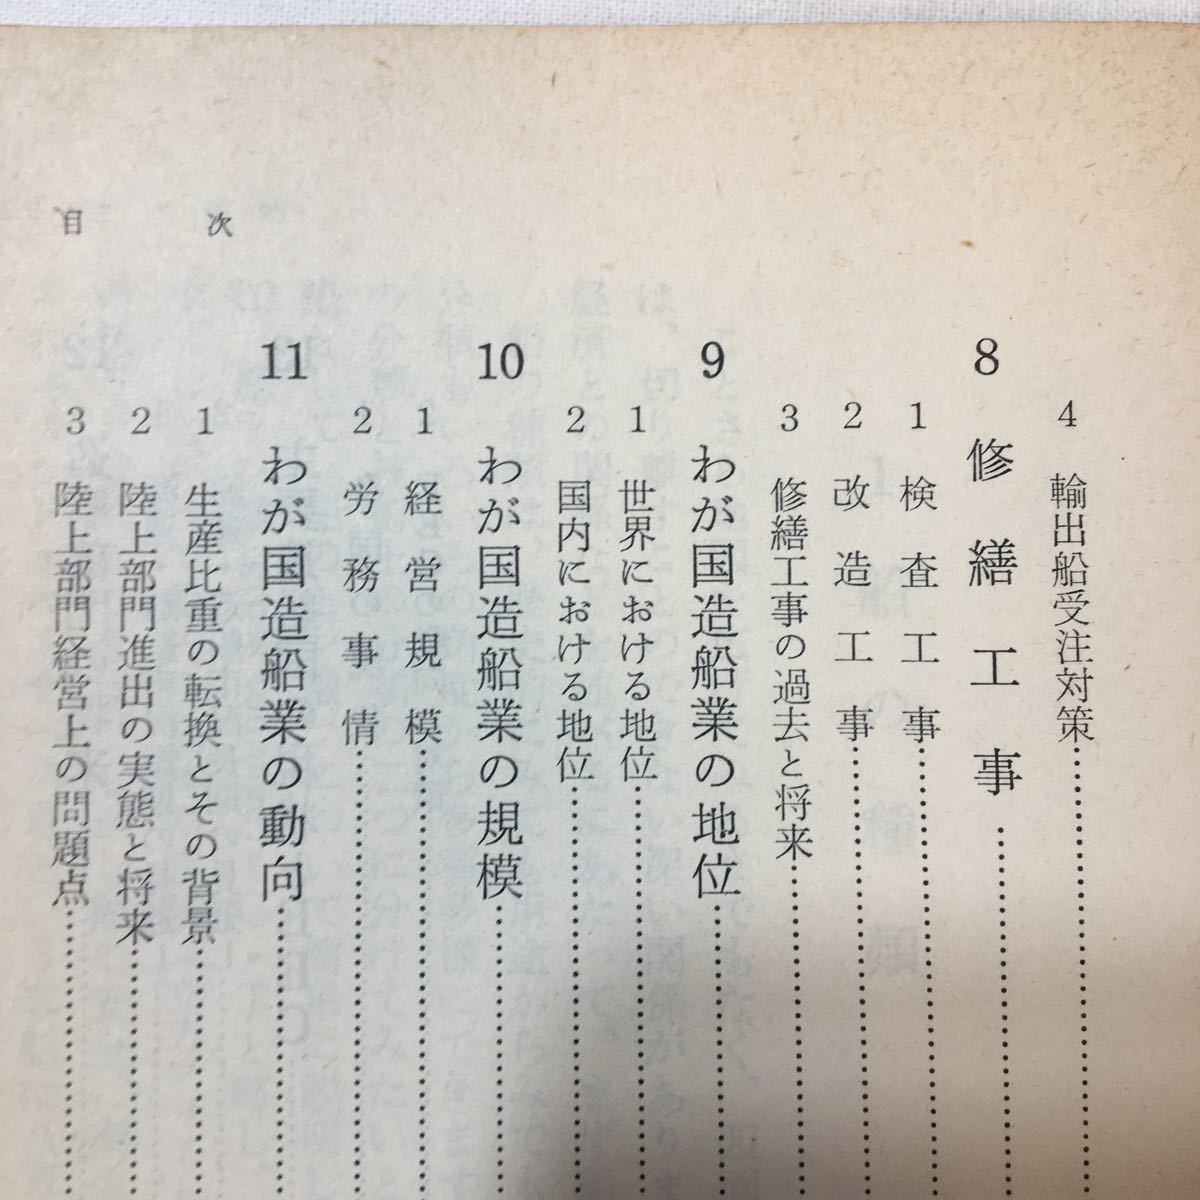 4 輸出船受注対策
8 修繕工事
1 検査工事
2 改造工事
3 修繕工事の過去と将来
9 わが国造船業の地位
1 世界における地位
2 国内における地位
10 わが国造船業の規模
1 経営規模
2 労務事情
11 わが国造船業の動向
1 生産比重の転換とその背景
2 陸上部門進出の実態と将来
3 陸上部門経営上の問題点
目次